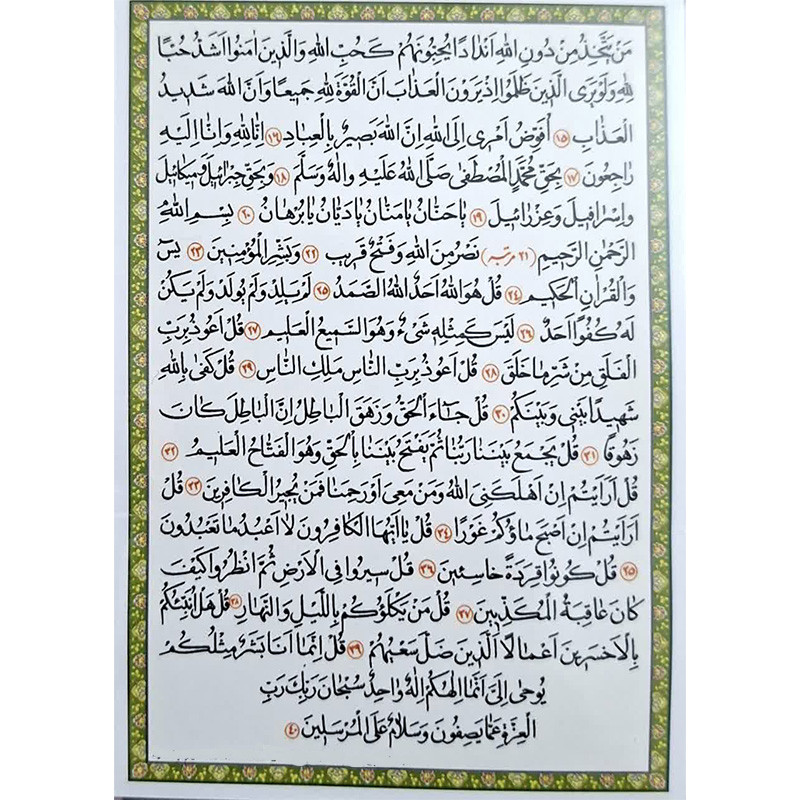 مَنْ يَتَّخِذُ مِنْ دُونِ اللهِ اَنْدَادًا يُحِبُّونَهُمْ كَحُبِّ اللهِ وَالَّذِينَ اٰمَنُوا اَشَدُّ حُبًّا
لِلهِ وَلَوْ يَرَى الَّذِينَ ظَلَمُوا اِذْ يَرَوْنَ الْعَذَابَ اَنَّ الْقُوَّةَ لِلهِ جَمِيعًا وَاَنَّ اللهَ شَدِيدُ
الْعَذَابِ ١٥ اُفَوِّضُ اَمْرِى اِلَى اللهِ اِنَّ اللهَ بَصِيرٌ بِالْعِبَادِ ١٦ اِنَّا لِلهِ وَاِنَّا اِلَيْهِ
رَاجِعُونَ ١٧ بِحَقِّ مُحَمَّدٍ الْمُصْطَفٰى صَلَّى اللهُ عَلَيْهِ وَاٰلِهِ وَسَلَّمَ ١٨ وَبِحَقِّ جِبْرَائِيلَ وَمِيكَائِيلَ
وَاِسْرَافِيلَ وَعِزْرَائِيلَ ١٩ يَاحَنَّانُ يَامَنَّانُ يَادَيَّانُ يَابُرْهَانُ ٢٠ بِسْمِ اللهِ
الرَّحْمٰنِ الرَّحِيمِ (٢١ مرتبہ) نَصْرٌ مِنَ اللهِ وَفَتْحٌ قَرِيبٌ ٢٢ وَبَشِّرِ الْمُؤْمِنِينَ ٢٣ يٰسٓ
وَالْقُرْاٰنِ الْحَكِيمِ ٢٤ قُلْ هُوَ اللهُ اَحَدٌ اَللهُ الصَّمَدُ ٢٥ لَمْ يَلِدْ وَلَمْ يُولَدْ وَلَمْ يَكُنْ
لَهُ كُفُوًا اَحَدٌ ٢٦ لَيْسَ كَمِثْلِهِ شَىْءٌ وَهُوَ السَّمِيعُ الْعَلِيمُ ٢٧ قُلْ اَعُوذُ بِرَبِّ
الْفَلَقِ مِنْ شَرِّ مَا خَلَقَ ٢٨ قُلْ اَعُوذُ بِرَبِّ النَّاسِ مَلِكِ النَّاسِ ٢٩ قُلْ كَفٰى بِاللهِ
شَهِيدًا بَيْنِى وَبَيْنَكُمْ ٣٠ قُلْ جَاءَ الْحَقُّ وَزَهَقَ الْبَاطِلُ اِنَّ الْبَاطِلَ كَانَ
زَهُوقًا ٣١ قُلْ يَجْمَعُ بَيْنَنَا رَبُّنَا ثُمَّ يَفْتَحُ بَيْنَنَا بِالْحَقِّ وَهُوَ الْفَتَّاحُ الْعَلِيمُ ٣٢
قُلْ اَرَاَيْتُمْ اِنْ اَهْلَكَنِىَ اللهُ وَمَنْ مَعِىَ اَوْ رَحِمَنَا فَمَنْ يُجِيرُ الْكَافِرِينَ ٣٣ قُلْ
اَرَاَيْتُمْ اِنْ اَصْبَحَ مَاؤُكُمْ غَوْرًا ٣٤ قُلْ يَا اَيُّهَا الْكَافِرُونَ لَا اَعْبُدُ مَا تَعْبُدُونَ
٣٥ قُلْ كُونُوا قِرَدَةً خَاسِئِينَ ٣٦ قُلْ سِيرُوا فِى الْاَرْضِ ثُمَّ انْظُرُوا كَيْفَ
كَانَ عَاقِبَةُ الْمُكَذِّبِينَ ٣٧ قُلْ مَنْ يَكْلَؤُكُمْ بِاللَّيْلِ وَالنَّهَارِ ٣٨ قُلْ هَلْ اُنَبِّئُكُمْ
بِالْاَخْسَرِينَ اَعْمَالًا اَلَّذِينَ ضَلَّ سَعْيُهُمْ ٣٩ قُلْ اِنَّمَا اَنَا بَشَرٌ مِثْلُكُمْ
يُوحٰى اِلَىَّ اَنَّمَا اِلٰهُكُمْ اِلٰهٌ وَاحِدٌ سُبْحَانَ رَبِّكَ رَبِّ
الْعِزَّةِ عَمَّا يَصِفُونَ وَسَلَامٌ عَلَى الْمُرْسَلِينَ ٤٠